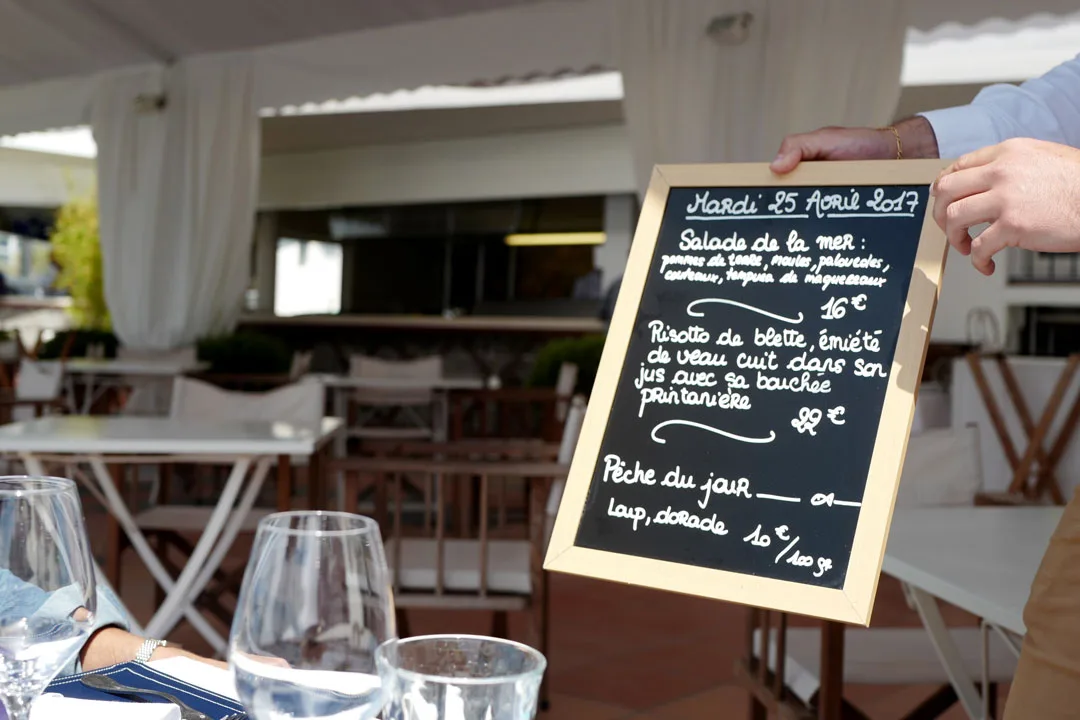 Mardi 25 Avril 2017
Salade de la mer :
pommes de terre, moules, palourdes,
couteaux, tempura de maquereaux
16€
Risotto de blette, émiété
de veau cuit dans son
jus avec sa bouchée
printanière
22€
Pêche du jour
Loup, dorade 10€/100 gr